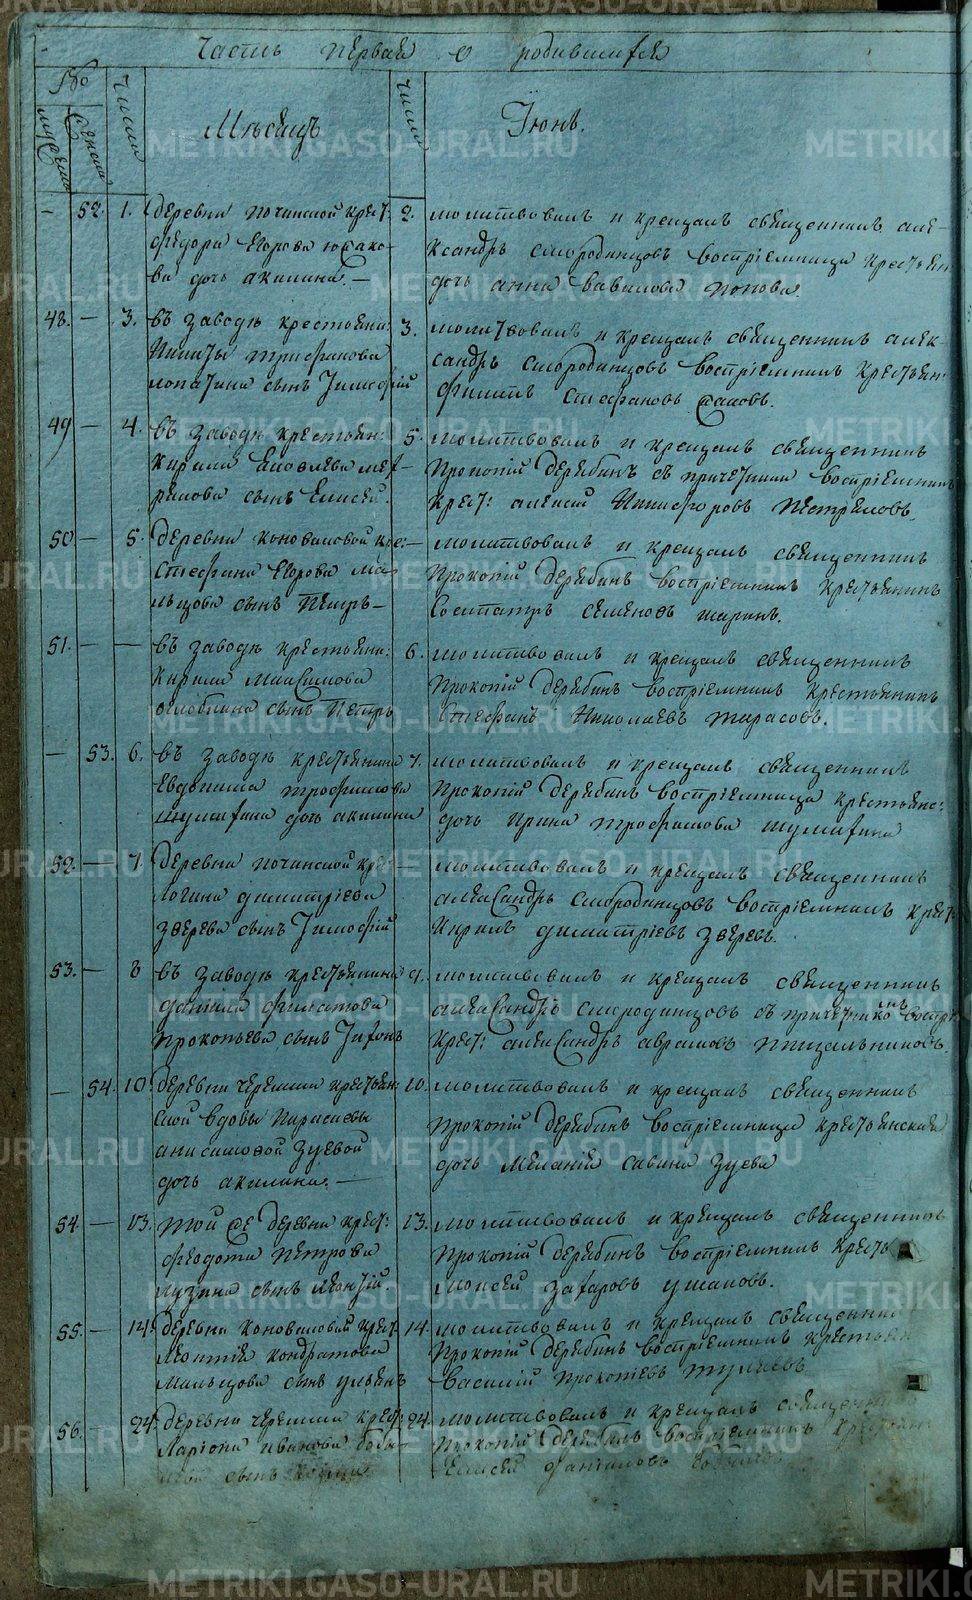 Часть первая о родившихся
№
мужеска
женска
Число
Мѣсяцъ
Число
Іюнь.
— 52. 1. деревни починской крест:
федора Егорова
ва дочь акилина. —
2. молитвовалъ и крещалъ священникъ але-
ксандръ смородинцовъ воспріемница крестьян:
дочь анна вавилова попова.
48. — 3. въ заводѣ крестьянина
Никиты трифанова
лопатина сынъ Тимофѣй
3. молитвовалъ и крещалъ священникъ алек-
сандръ смородинцовъ воспріемникъ крестьян:
филипъ стефановъ
49 — 4. въ заводѣ крестьян:
Кирила Яковлева
сынъ Елисей.
5. молитвовалъ и крещалъ священникъ
Прокопій дерябинъ съ причетники воспріемникъ
Крест: алексѣй Никифоровъ
50. — 5. деревни коноваловой кре:
Стефана Егорова ма-
льцова сынъ Петръ —
— молитвовалъ и крещалъ священникъ
Прокопій дерябинъ воспріемникъ крестьянинъ
семеновъ
51. — — въ заводѣ крестьянина
Кирила Максимова
оглоблина сынъ Петръ
6. молитвовалъ и крещалъ священникъ
Прокопій дерябинъ воспріемникъ крестьянинъ
Стефанъ Николаевъ тарасовъ.
— 53. 6. въ заводѣ крестьянина
Евдокима трофимова
шумихина дочь акилина
7. молитвовалъ и крещалъ священникъ
Прокопій дерябинъ воспріемница крестьянс:
дочь Ирина трофимова шумихина
52 — 7. деревни починской крес
Логина димитріева
зверева сынъ Тимофѣй
— молитвовалъ и крещалъ священникъ
александръ смородинцовъ воспріемникъ крест:
Кирилъ димитріевъ зверевъ.
53. — 8 въ заводѣ крестьянина
данила филатова
прокопьева сынъ Тихонъ
9. молитвовалъ и крещалъ священникъ
александръ смородинцовъ съ причетникомъ воспрі:
крест: александръ аврамовъ пищальниковъ.
— 54. 10. деревни черемши крестьян:
ской вдовы Парасковьи
анисимовой зуевой
дочь акилина. —
10. молитвовалъ и крещалъ священникъ
Прокопій дерябинъ воспріемница крестьянская
дочь Меланія савина зуева
54. — 13. той же деревни крест:
федота Петрова
кузина сынъ Леонтій.
13. молитвовалъ и крещалъ священникъ
Прокопій дерябинъ воспріемникъ крестья
Моисей захаровъ ушаковъ.
55. — 14. деревни коноваловой крест:
Леонтія кондратова
мальцова сынъ ульянъ
14 молитвовалъ и крещалъ священникъ
Прокопій дерябинъ воспріемникъ крестьян
василій прокопіевъ
56. 24. деревни черемши крест:
Ларіона иванова
сынъ
24. молитвовалъ и крещалъ священникъ
Прокопій дерябинъ воспріемникъ крестьян
Елисей
METRIKI.GASO-URAL.RU